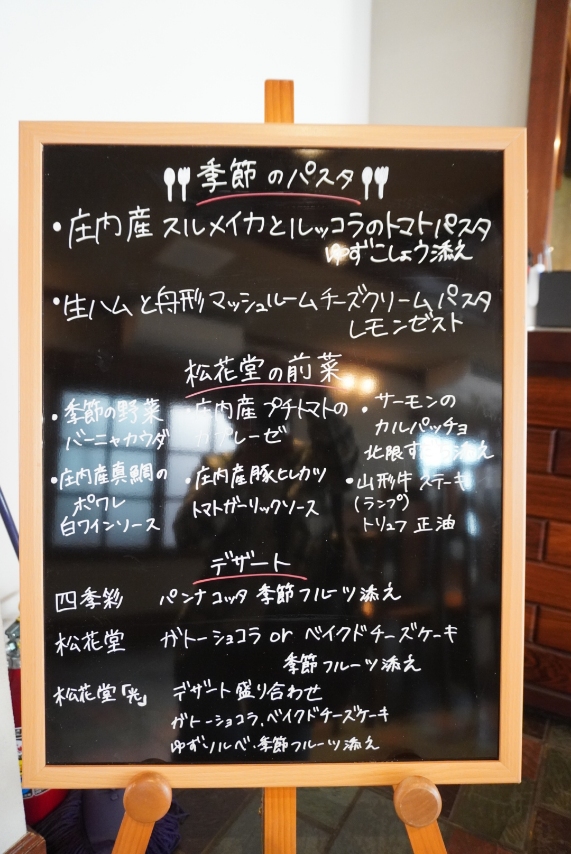 季節のパスタ
・庄内産 スルメイカとルッコラのトマトパスタ
ゆずこしょう添え
・生ハムと舟形マッシュルームチーズクリームパスタ
レモンゼスト
松花堂の前菜
・季節の野菜
バーニャカウダ
・庄内産 プチトマトの
カプレーゼ
・サーモンの
カルパッチョ
北限 添え
・庄内産真鯛の
ポワレ
白ワインソース
・庄内産豚ヒレカツ
トマトガーリックソース
・山形牛 ステーキ
(ランプ)
トリュフ 正油
デザート
四季彩 パンナコッタ 季節フルーツ添え
松花堂 ガトーショコラ or ベイクドチーズケーキ
季節フルーツ添え
松花堂「光」 デザート盛り合わせ
ガトーショコラ、ベイクドチーズケーキ
ゆずソルベ・季節フルーツ添え